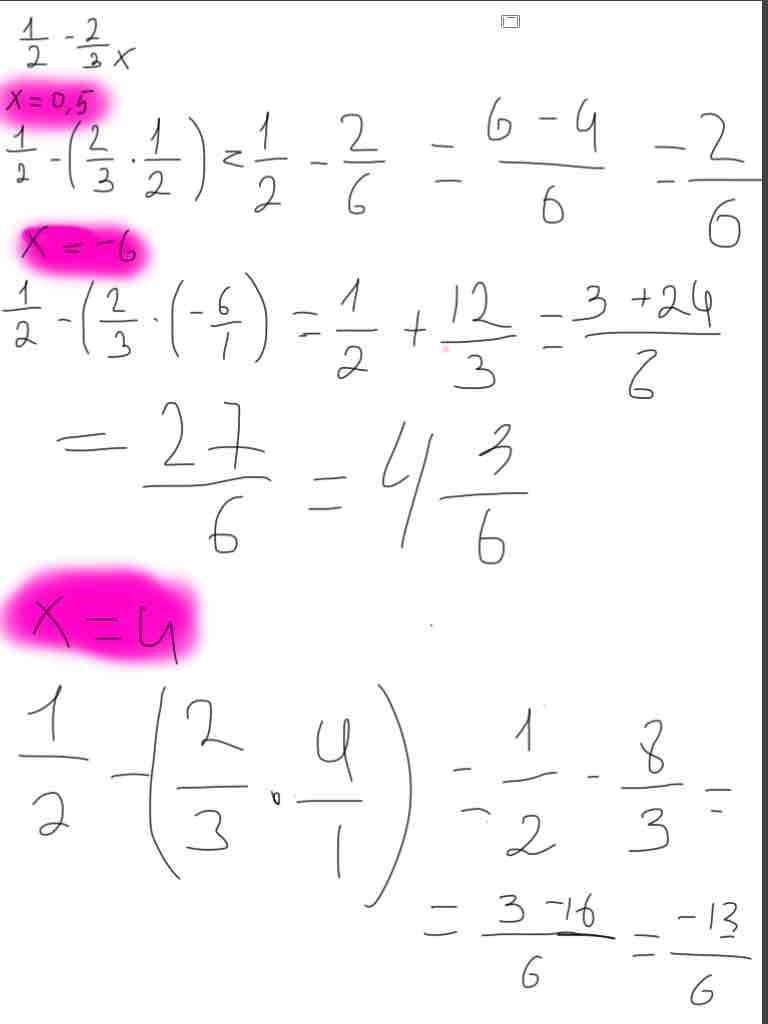 1/2 - 2/3 x
x = 0,5
1/2 - (2/3 · 1/2) = 1/2 - 2/6 = (6 - 4)/6 = 2/6
x = -6
1/2 - (2/3 · (-6/1) = 1/2 + 12/3 = (3 + 24)/6
= 27/6 = 4 3/6
x = 4
1/2 - (2/3 · 4/1) = 1/2 - 8/3 =
= (3 - 16)/6 = -13/6